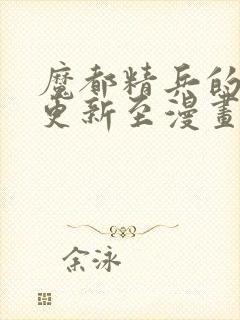 魔都精兵的
更新至漫畫
余泳